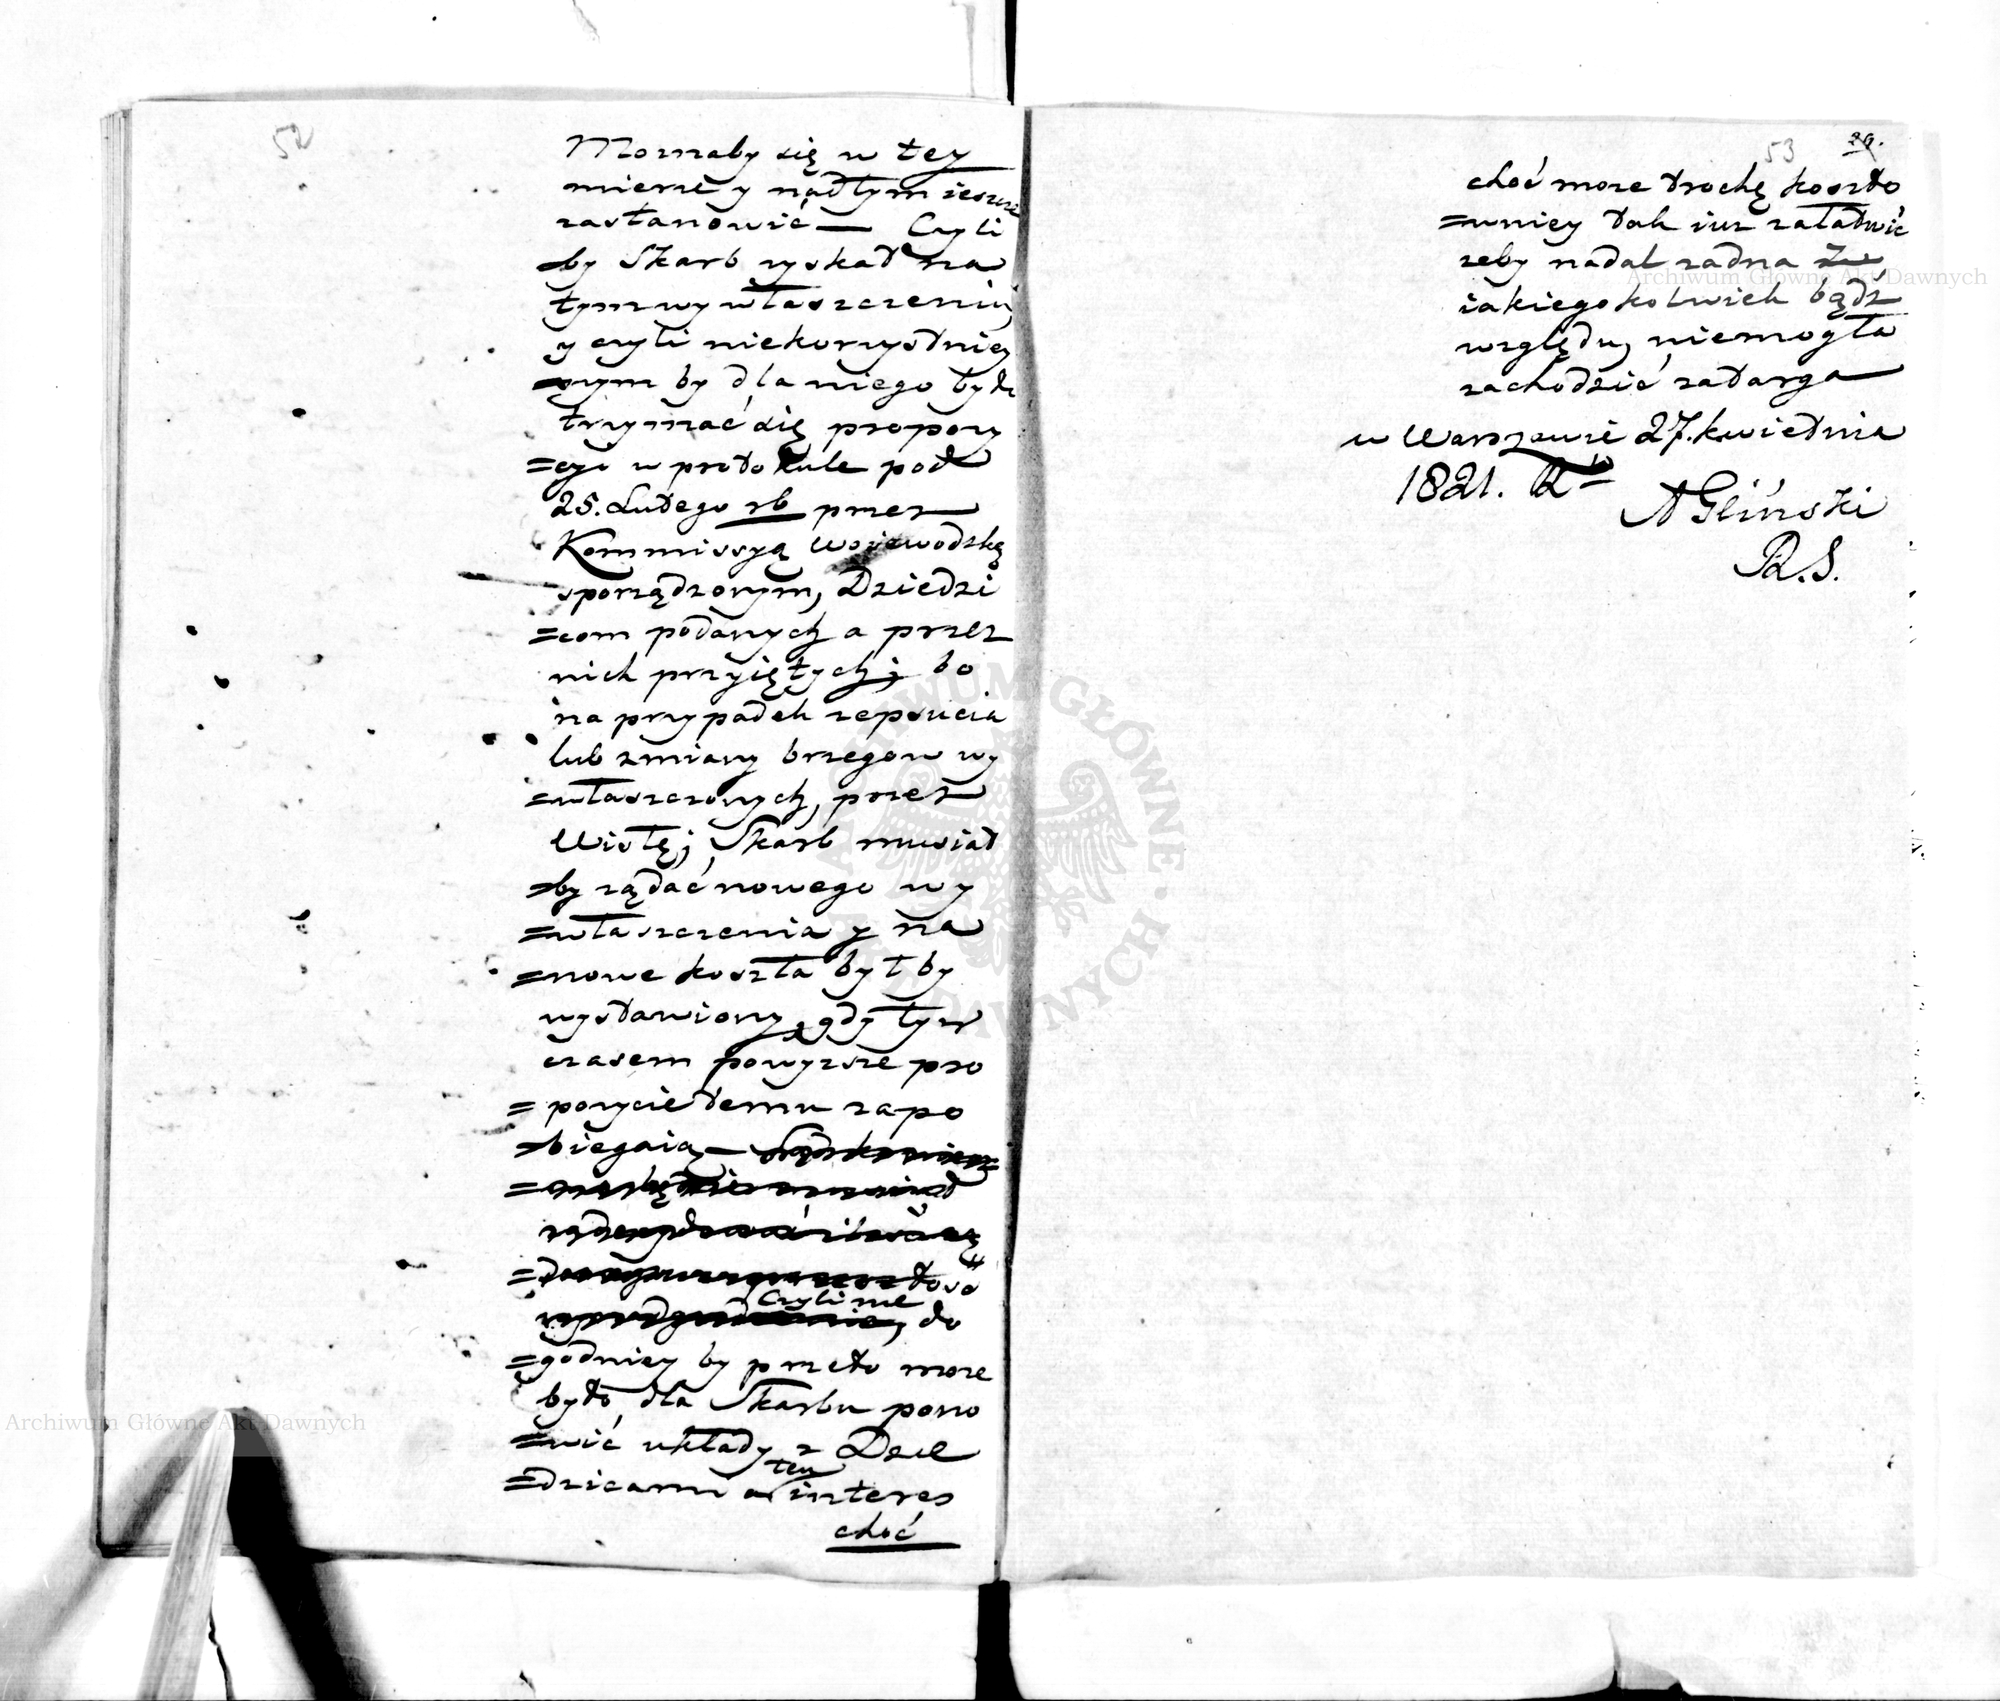 52
Moznaby się w tey
mierze y nadtym ieszcze
zastanowić — Czyli
=by Skarb zyskał na
tym wywłaszczeniu,
y czyli niekorzystniey
=szym by dla niego było
trzymać się propozy
=cyi w protokule pod
25. Lutego rb przez
Kommissyą Woiewodzką
sporządzonym, Dziedzi
=com podanych a przez
nich przyiętych; bo
na przypadek zepsucia
lub zmiany brzegow wy
=właszczonych, przez
Wisłę; Skarb musiał
=by ządać nowego wy
=właszczenia y na
=nowe koszta byłby
wystawiony, gdy tym
czasem powyzsze pro
=pozycie temu zapo
=biegaią —
czyli nie
do
=godniey by przeto moze
było dla Skarbu pono
=wić układy z Dzie
=dzicami a ten interes
choć
53
29.
choć moze trochę koszto
=wniey tak iuz załatwić
zeby nadal zadna z
iakiegokolwiek bądz
względu, niemogła
zachodzić zatarga
w Warszawie 27. kwietnia
1821. R
A Gliński
R. S.
Archiwum Główne Akt Dawnych
Archiwum Główne Akt Dawnych
ARCHIWUM GŁÓWNE AKT DAWNYCH